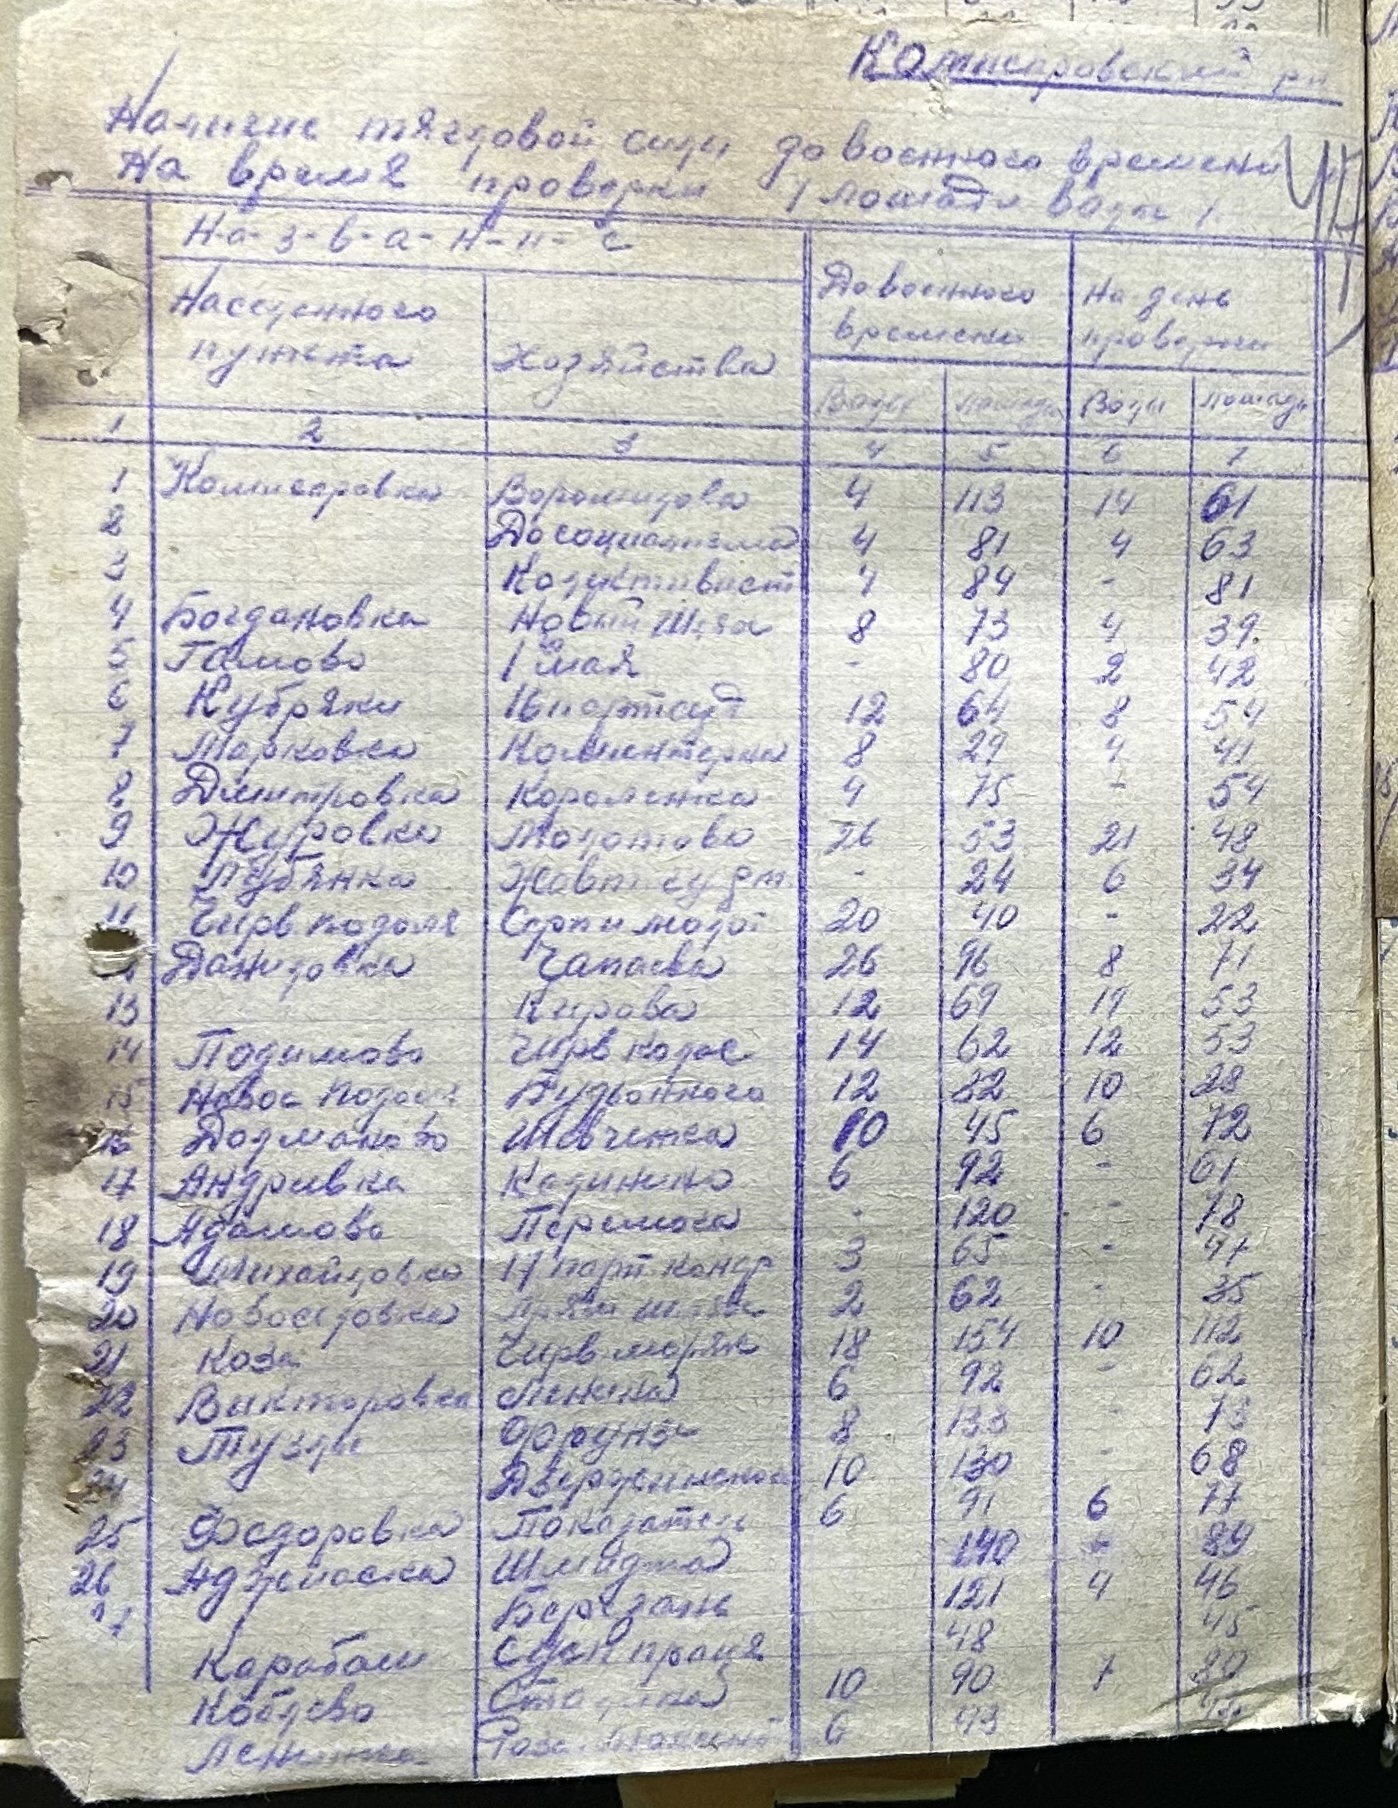 Комисаровский р-н
Наличие тягловой силы довоенного времени
На время проверки /лошади волы/
Н-а-з-в-а-н-и-е
Населенного пункта Хозяйства Довоенного времени На день проверки
Волы лошади Волы лошади
1 2 3 4 5 6 7
1 Комисаровка Ворошилова 4 113 14 61
2 Досоциализма 4 81 4 63
3 Колективист 4 89 - 81
4 Богдановка Новый Шлях 8 73 4 39
5 Гамово 1 мая - 80 2 42
6 Кубряки 16 партсъезд 12 64 8 54
7 Марковка Коминтерна 8 29 4 41
8 Дмитровка Короленка 4 75 - 54
9 Журовка Молотова 26 53 21 48
10 Лубянка - 24 6 34
11 Черв. Серп и молот 20 40 - 22
Чапаева 26 96 8 71
13 Кирова 12 69 14 53
14 Червколос 14 62 12 53
15 Будьонного 12 32 10 28
16 Шевченка 10 45 6 72
17 Андривка Калинино 6 92 - 61
18 Перемога - 120 - 78
19 Михайловка 17 парт 3 65 -
20 Новоселовка 2 62 - 35
21 Коза Черв. маряк 18 154 10 112
22 Викторовка Ленина 6 92 - 62
23 Тузлы Фрунзе 8 133 - 73
24 Дзержинского 10 130 - 68
25 Федоровка Показатель 6 91 6 77
26 Аджиаска Шмидта 140 - 89
27 Березань 121 4 46
Карабаш 48 45
Коблево Сталина 10 90
Роза 6